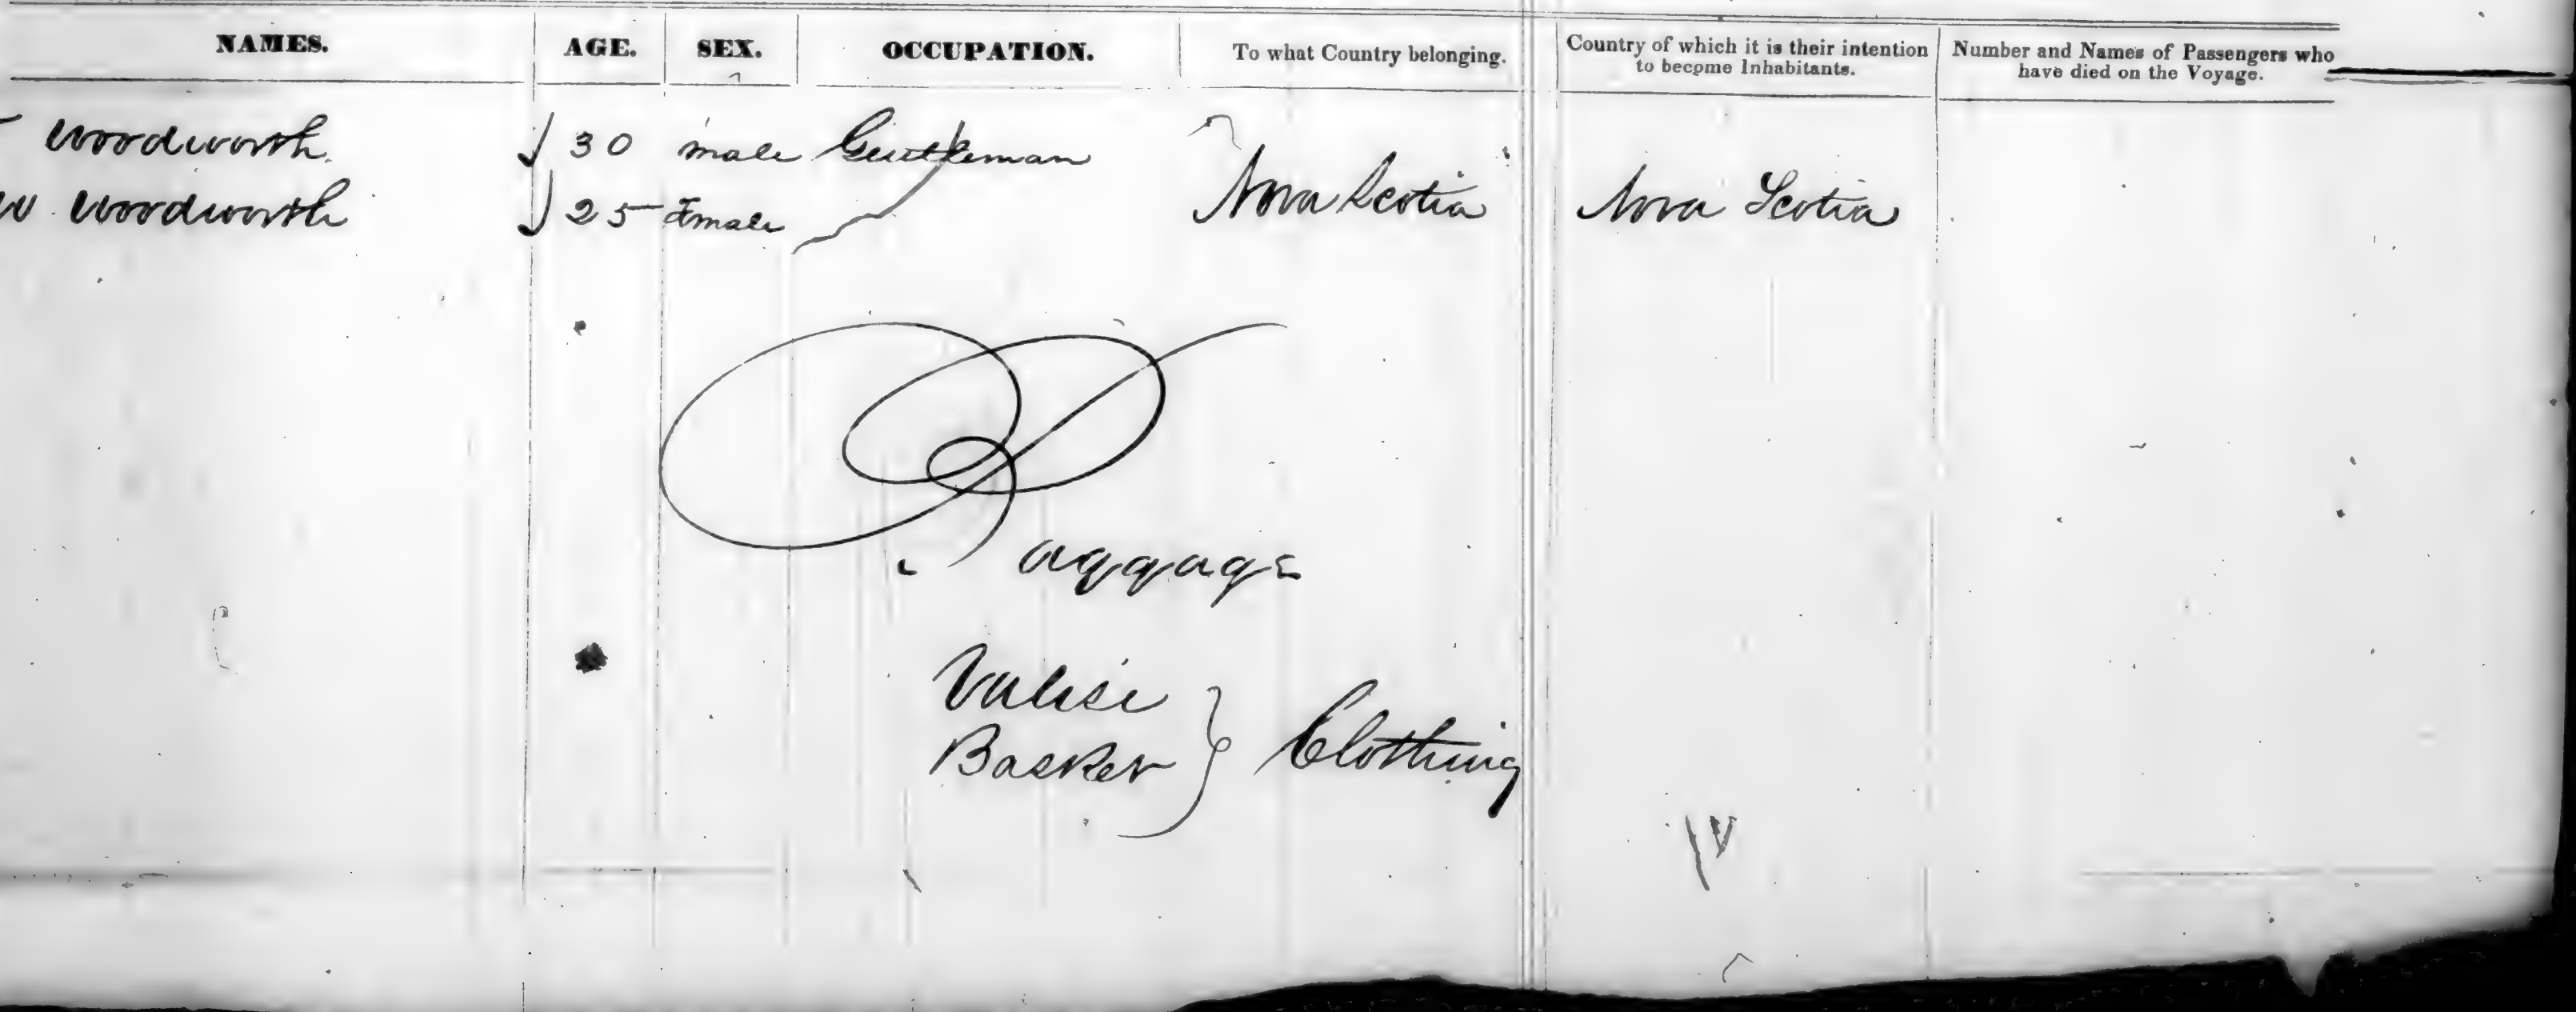 NAMES. AGE. SEX. OCCUPATION. To what Country belonging. Country of which it is their intention to become Inhabitants. Number and Names of Passengers who have died on the Voyage.
Woodworth 30 male Gentleman
W Woodworth 25 Female Nova Scotia Nova Scotia
Baggage
Valise
Basket } Clothing